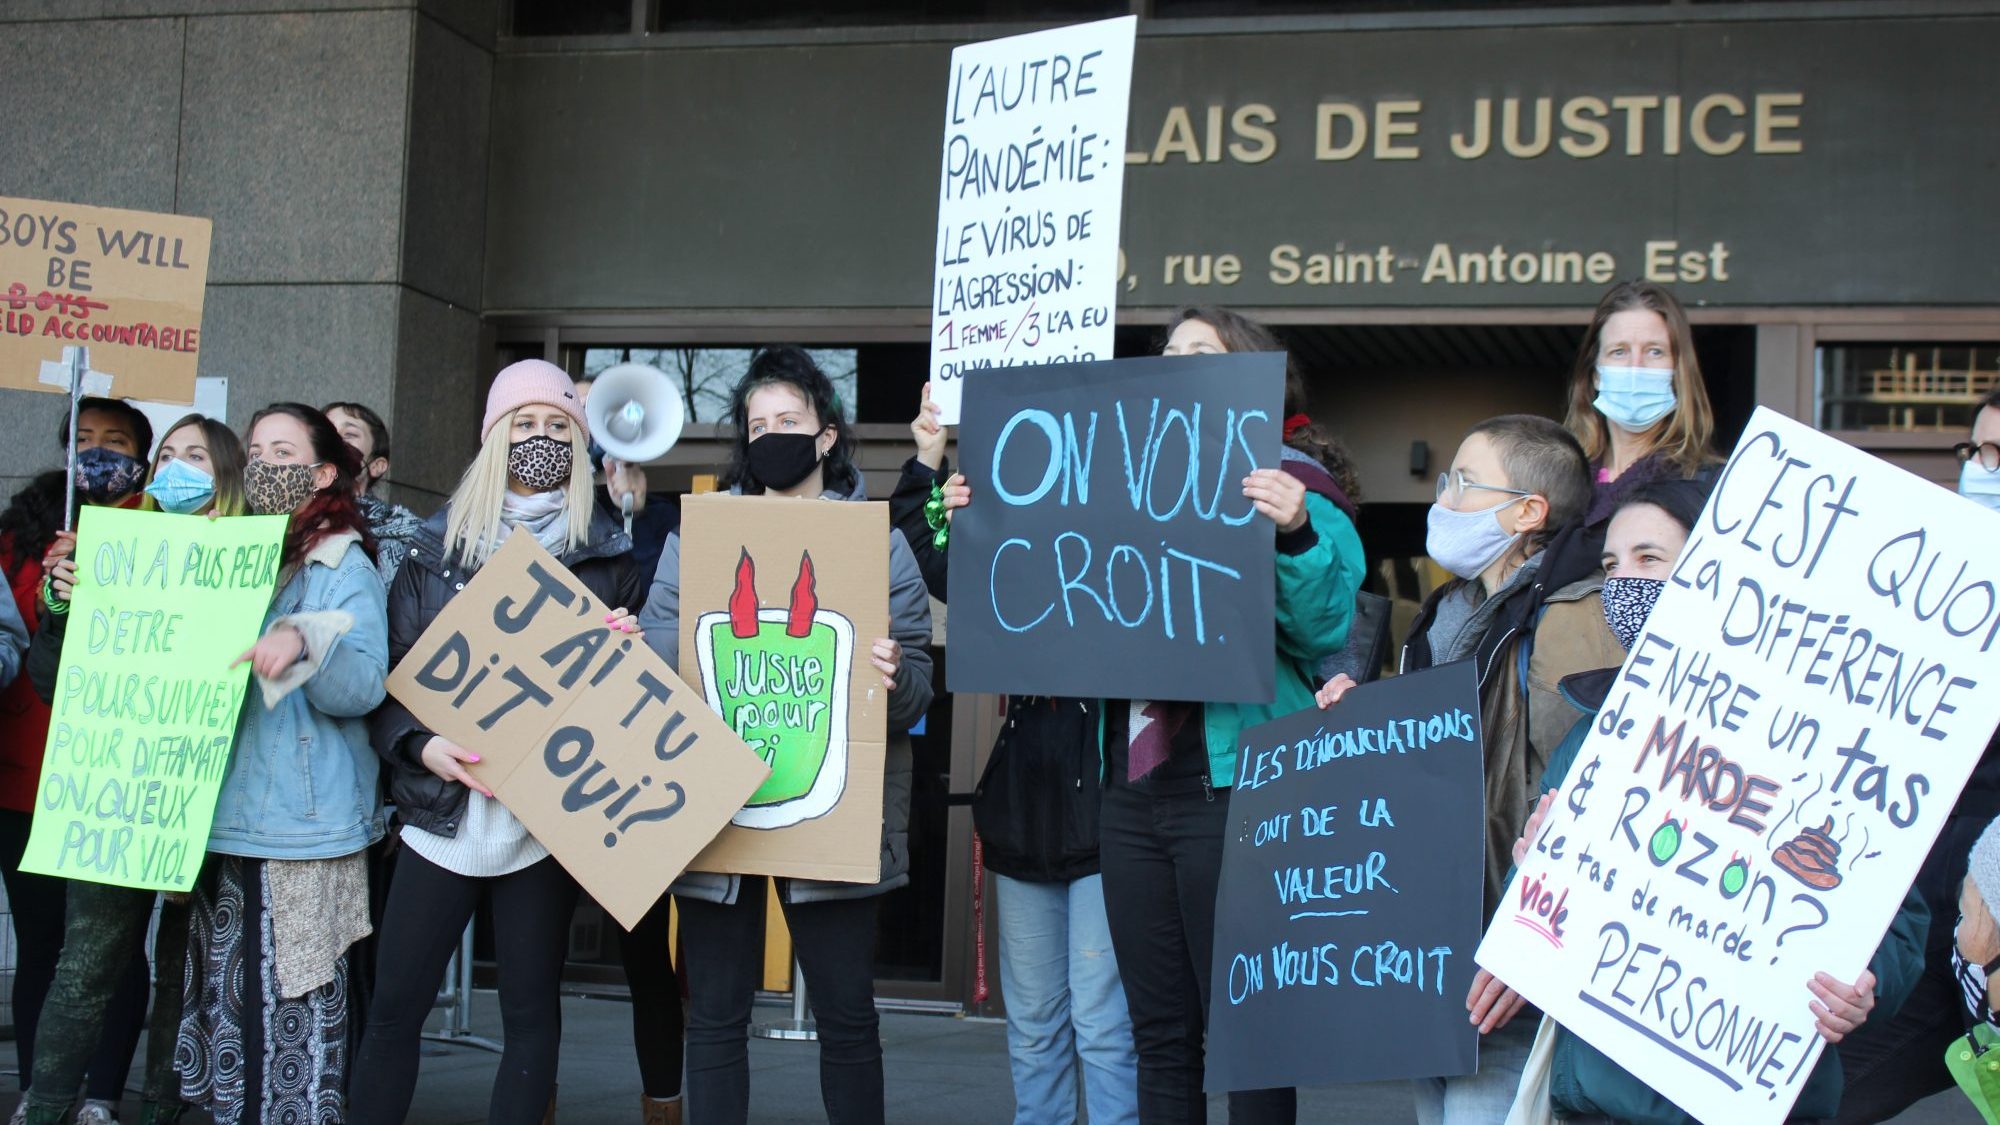 BOYS WILL
BE
BOYS
ELD ACCOUNTABLE
ON A PLUS PEUR
D'ETRE
POURSUIVI·E·X
POUR DIFFAMATI
ON, QU'EUX
POUR VIOL
J'AI TU
DIT OUI?
JUSTE
pour
ri
L'AUTRE
PANDÉMIE:
LE VIRUS DE
L'AGRESSION:
1 FEMME/3 L'A EU
OU VA L'AVOIR
LAIS DE JUSTICE
, rue Saint-Antoine Est
ON VOUS
CROIT.
LES DÉNONCIATIONS
ONT DE LA
VALEUR.
ON VOUS CROIT
C'EST QUOI
La DIFFÉRENCE
ENTRE un tas
de MARDE
& ROZON?
Le tas de marde
viole
PERSONNE!